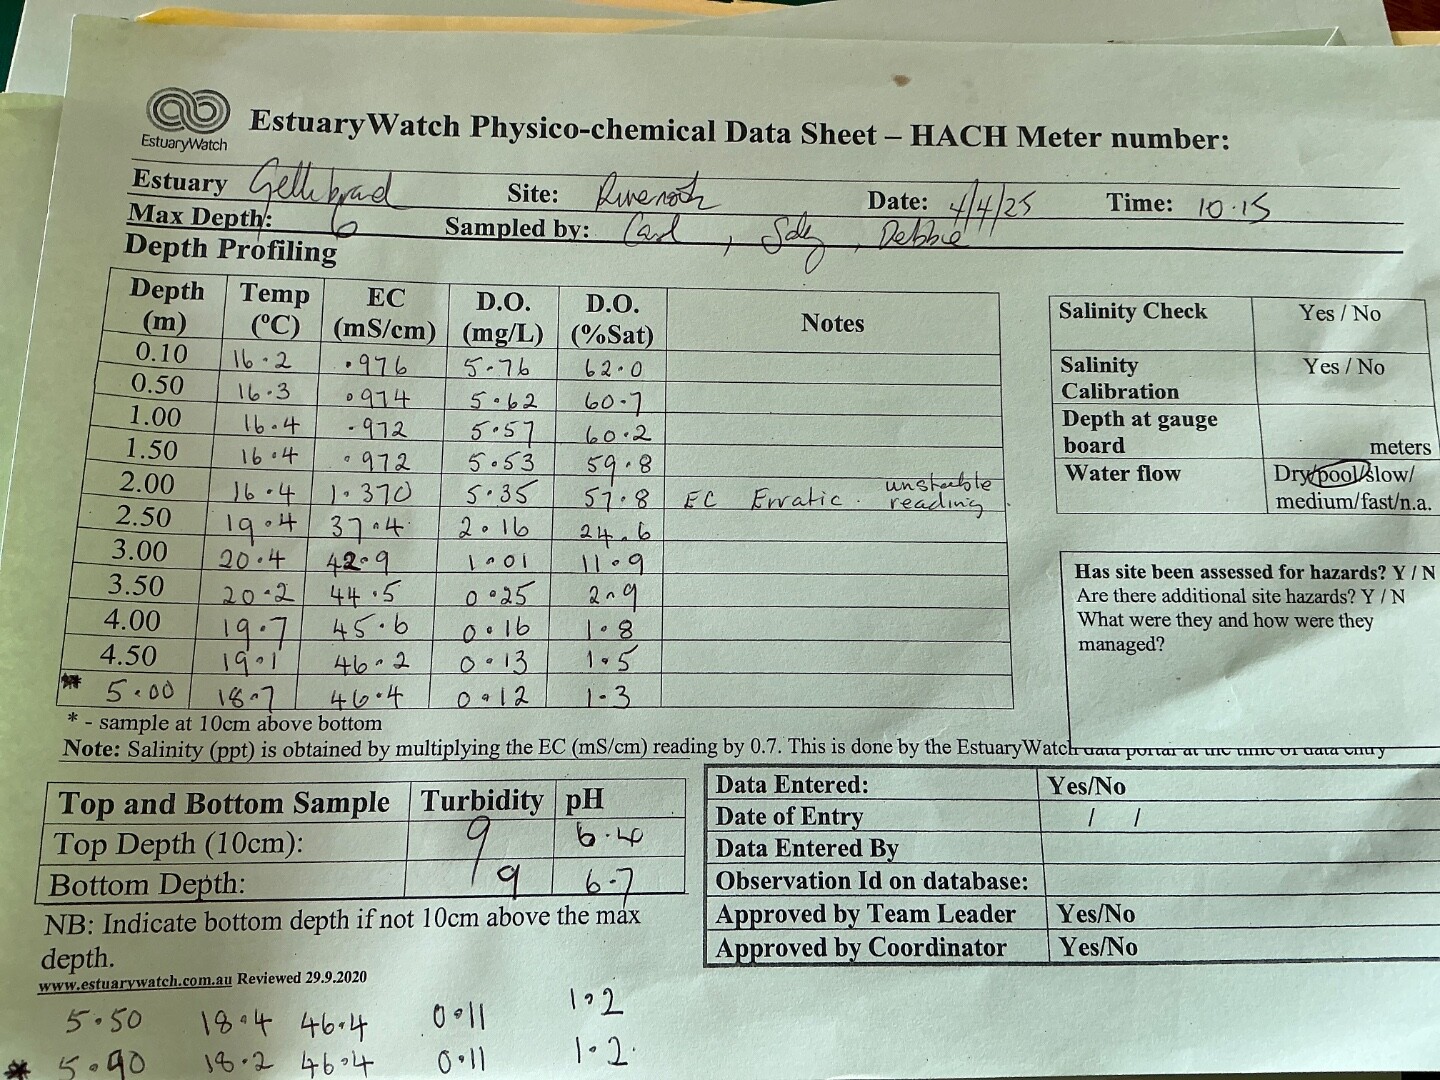 EstuaryWatch
EstuaryWatch Physico-chemical Data Sheet – HACH Meter number:
Estuary Gellibrad Site: Date: 4/4/25 Time: 10.15
Max Depth: 6 Sampled by: Carl , , Debbie
Depth Profiling
Depth (m) Temp (ºC) EC (mS/cm) D.O. (mg/L) D.O. (%Sat) Notes
0.10 16.2 .976 5.76 62.0
0.50 16.3 .974 5.62 60.7
1.00 16.4 .972 5.57 60.2
1.50 16.4 .972 5.53 59.8
2.00 16.4 1.370 5.35 57.8 EC Erratic. unstable reading.
2.50 19.4 37.4 2.16 24.6
3.00 20.4 42.9 1.01 11.9
3.50 20.2 44.5 0.25 2.9
4.00 19.7 45.6 0.16 1.8
4.50 19.1 46.2 0.13 1.5
* 5.00 18.7 46.4 0.12 1.3
* - sample at 10cm above bottom
Note: Salinity (ppt) is obtained by multiplying the EC (mS/cm) reading by 0.7. This is done by the EstuaryWatch data portal at the time of data entry
Salinity Check Yes / No
Salinity Calibration Yes / No
Depth at gauge board meters
Water flow Dry/pool/slow/
medium/fast/n.a.
Has site been assessed for hazards? Y / N
Are there additional site hazards? Y / N
What were they and how were they
managed?
Top and Bottom Sample Turbidity pH
Top Depth (10cm): 9 6.4
Bottom Depth: 9 6.7
NB: Indicate bottom depth if not 10cm above the max
depth.
www.estuarywatch.com.au Reviewed 29.9.2020
Data Entered: Yes/No
Date of Entry / /
Data Entered By
Observation Id on database:
Approved by Team Leader Yes/No
Approved by Coordinator Yes/No
5.50 18.4 46.4 0.11 1.2
* 5.90 18.2 46.4 0.11 1.2